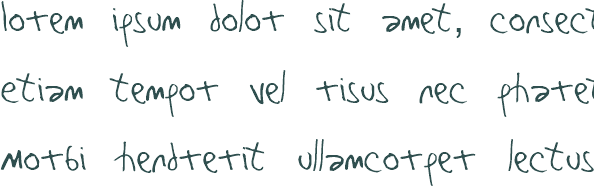 lorem ipsum dolor sit amet, consect
etiam tempor vel risus nec pharet
morbi hendrerit ullamcorper lectus